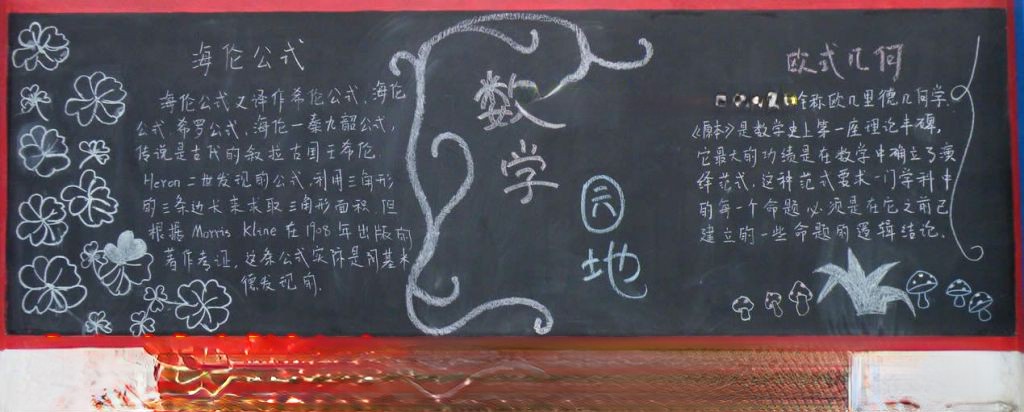 海伦公式
海伦公式又译作希伦公式,海伦
公式,希罗公式,海伦一秦九韶公式,
传说是古代的叙拉古国王希伦
Heron二世发现的公式,利用三角形
的三条边长来求取三角形面积.但
根据 Morris Kline在1908年出版的
著作考证,这条公式实际是阿基米
德发现的.
数
学
园
地
欧式几何
全称欧几里德几何学.
《原本》是数学史上第一座理论丰碑,
它最大的功绩是在数学中确立了演
绎范式,这种范式要求一门学科中
的每一个命题必须是在它之前已
建立的一些命题的逻辑结论.